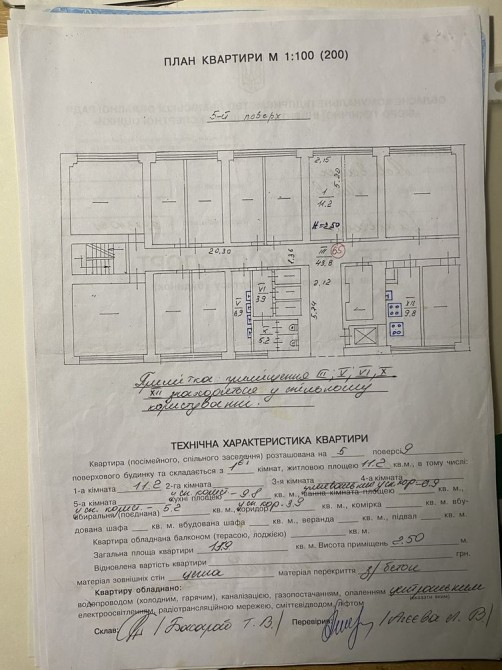 ПЛАН КВАРТИРИ М 1:100 (200)
5-й поверх
2.15
5.20
1
11.2
H=2.50
20.30
1.36
III
49.8
55
2.12
5.74
V
8.9
VI
3.9
X
5.2
XII
9.8
Примітка приміщення III, V, VI, X
XII находяться у спільному
користуванні.
ТЕХНІЧНА ХАРАКТЕРИСТИКА КВАРТИРИ
Квартира (посімейного, спільного заселення) розташована на 5 поверсі 9
поверхового будинку та складається з 1ої кімнат, житловою площею 11.2 кв.м., в тому числі:
1-а кімната 11.2 2-га кімната 3-я кімната 4-а кімната
5-а кімната кухні площею кв. м, ванна кімната площею
вбиральні (поєднана) 5.2 кв. м, коридор кв. м., комірка кв. м, вбу-
дована шафа кв. м. вбудована шафа кв. м., веранда кв. м., підвал кв. м.
Квартира обладнана балконом (терасою, лоджією) кв. м.
Загальна площа квартири кв. м. Висота приміщень 2.50 м.
Відновлена вартість квартири грн.
матеріал зовнішніх стін цегла матеріал перекриття з/бетон
Квартиру обладнано:
водопроводом (холодним, гарячим), каналізацією, газопостачанням, опаленням центральним
електроосвітленням, радіотрансляційною мережею, сміттєвідводом, ліфтом
Склав Т. В. Перевірив